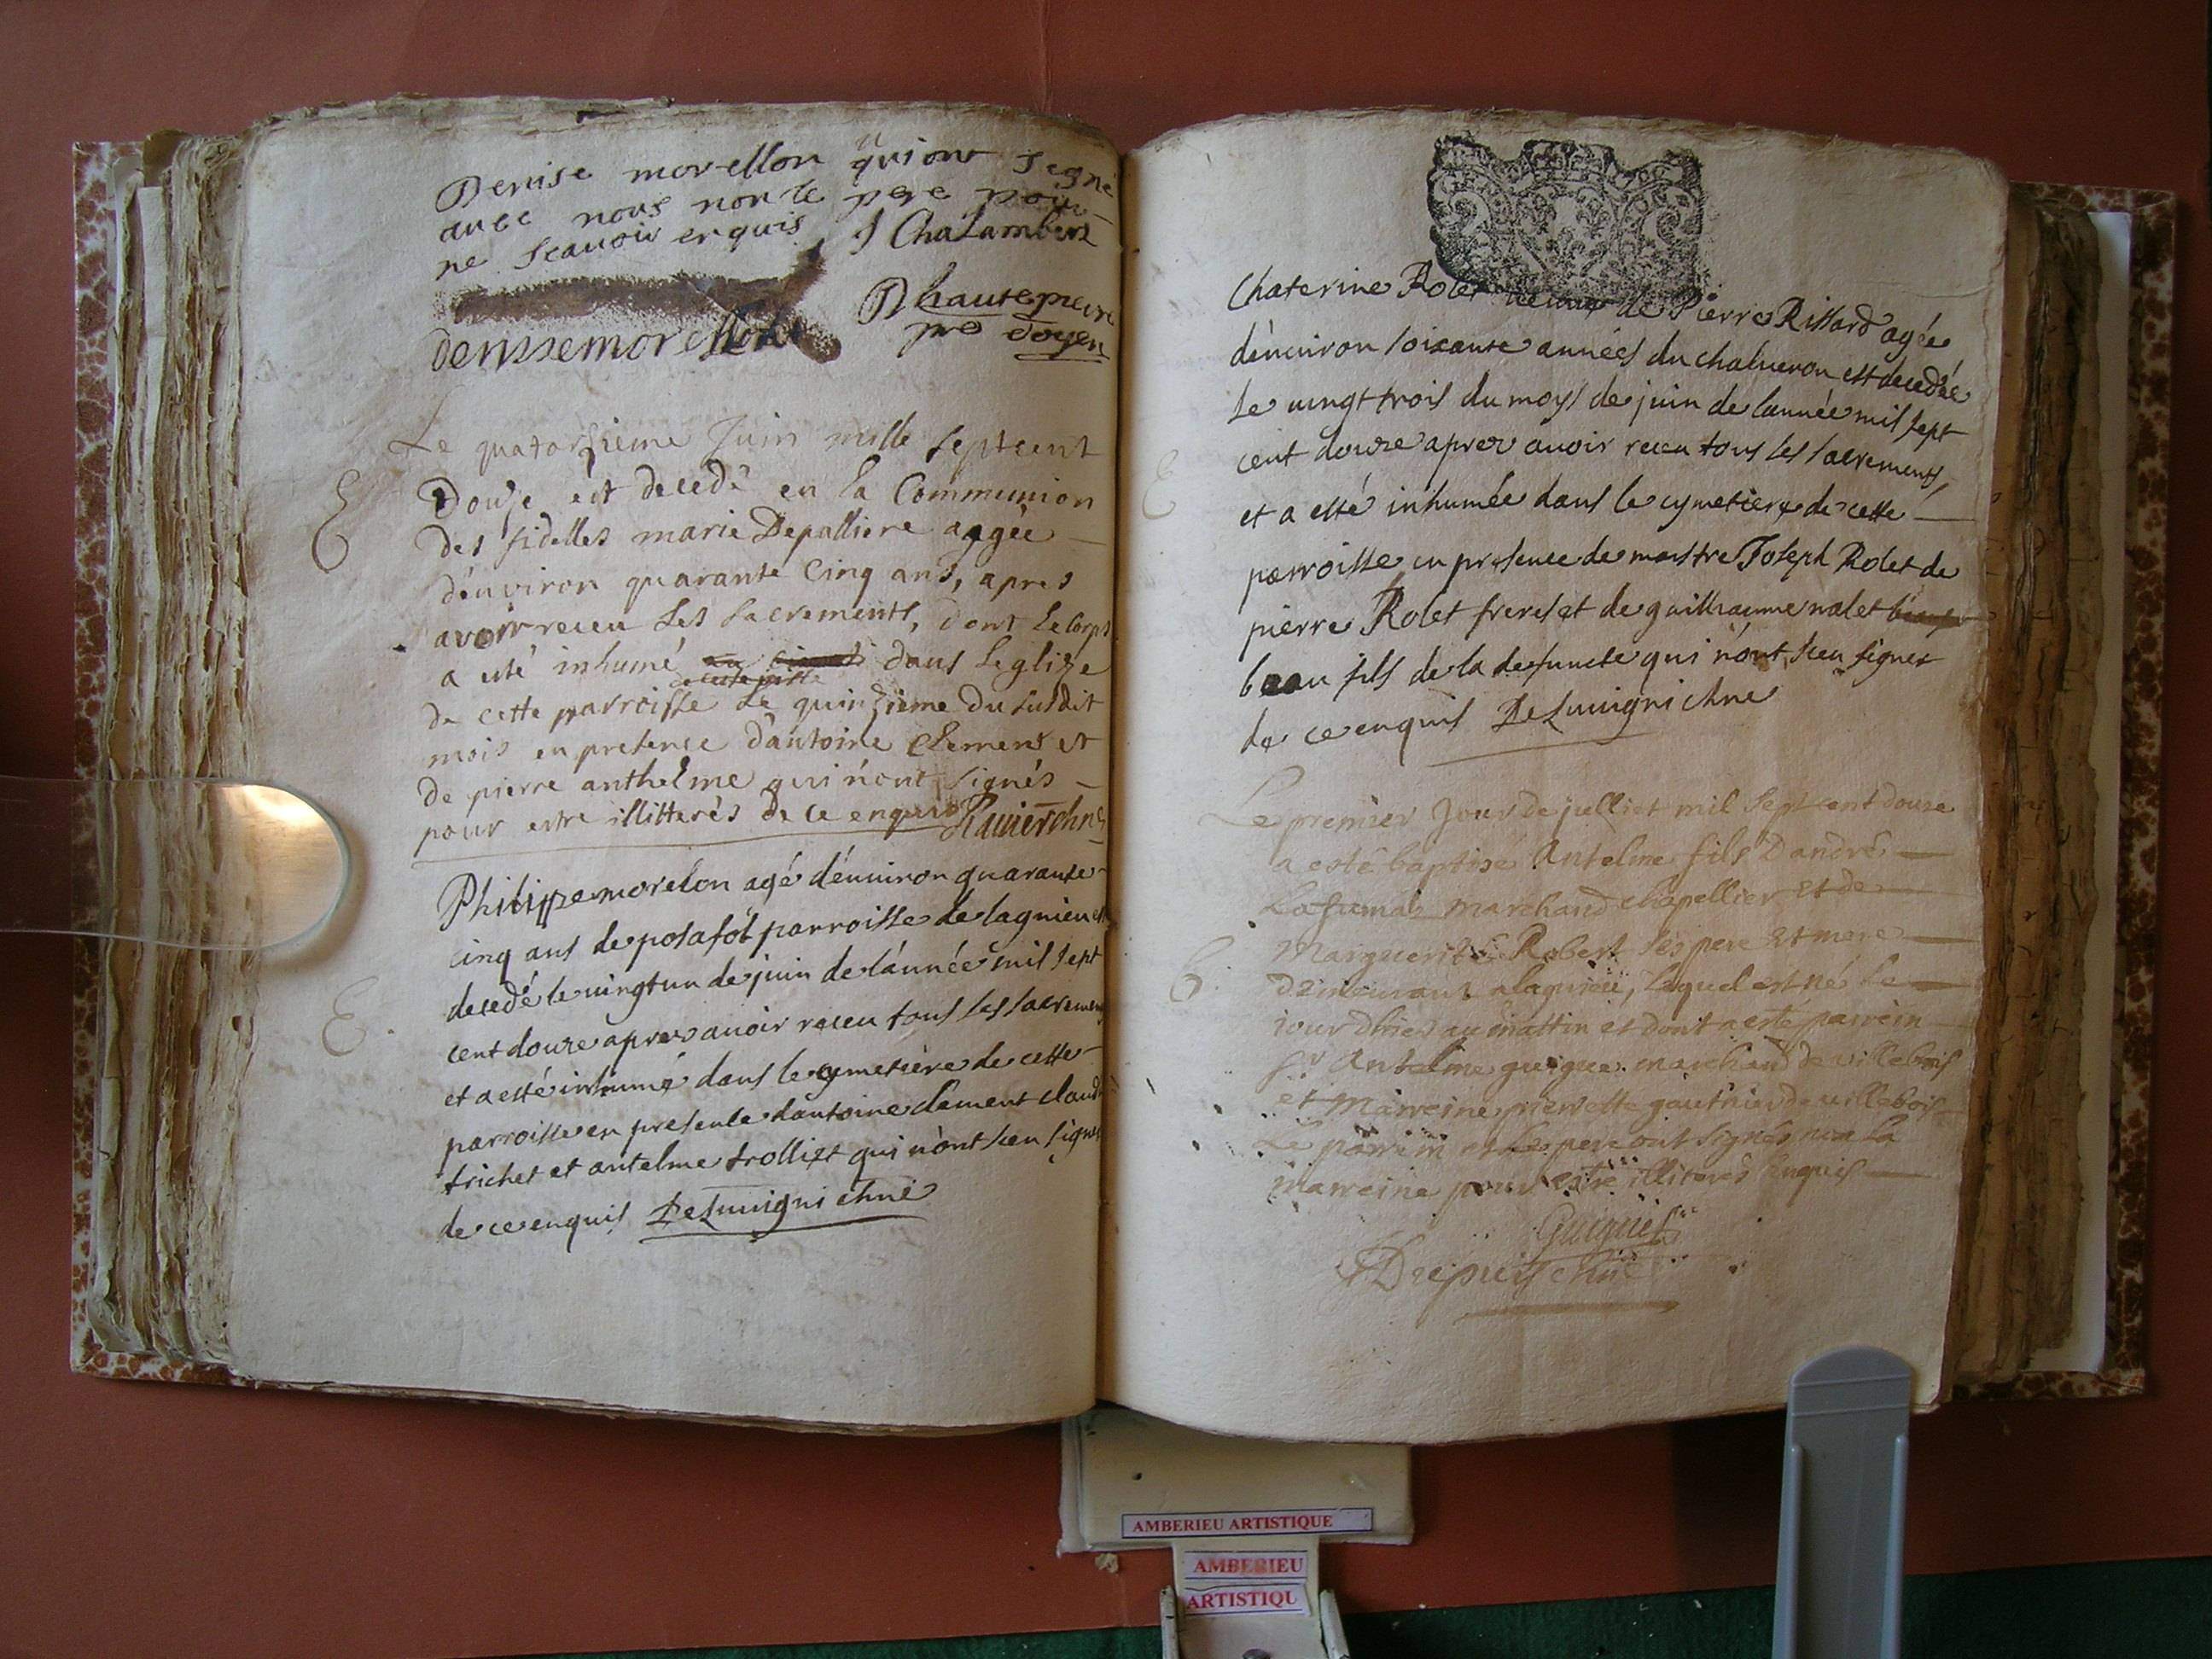 Denise morellon qui ont segné
avec nous non le pere pour
ne scavoir enquis J Chalambert
D hautepierre
denisse morellon pre doyen
Le quatorsieme Juin mille septcent
E
Douse est decedé en la Communion
des fidelles marie Depalliere aagée
d'environ quarante Cinq ans, apres
avoir receu les sacrements, dont le Corps
a esté inhumé dans Leglise
de cette parroisse Le quinzieme du susdit
mois en presence d'antoine Clement et
de pierre anthelme qui n'ont signés
pour estre illitterés de ce enquis Ravier chne
Philippe morelon agé d'enuiron quarante
cinq ans de posafol parroisse de lagnieu est
decedé le uingtun de juin de l'année mil sept
E
cent douze aprez auoir receu tous les sacrements
et a esté inhumé dans le cymetiere de cette
parroisse en presence dantoine clement claude
trichet et antelme trolliet qui n'ont sceu signer
de ce enquis DeLuuigni chne
Chaterine Rolet ueuue de Pierre Rissard agée
d'enuiron soixante années du chalueron est decedée
Le uingt trois du moys de juin de l'année mil sept
cent douze aprez auoir receu tous les sacrements
E
et a esté inhumée dans le cymetiere de cette
parroisse en presence de maistre Joseph Rolet de
pierre Rolet freres et de guilliaume nalet
beau fils de la defuncte qui n'ont sceu signer
de ce enquis DeLuuigni chne
Le premier Jour de julliet mil sept cent douze
a esté baptisé Antelme fils D'andré
Lafumas marchand chapellier et de
Marguerite Robert ses pere et mere
b.
demeurant a lagnieu, lequel est né le
jour d'hier au mattin et dont a esté parrein
sr Antelme guigue marchand de uillebois
et Marreine pierrette gauthier de uillebois
Le parrin et le pere ont signés non la
marreine pour estre illiterés Enquis
Guigue
Dupuis chne
AMBERIEU ARTISTIQUE
AMBERIEU
ARTISTIQU